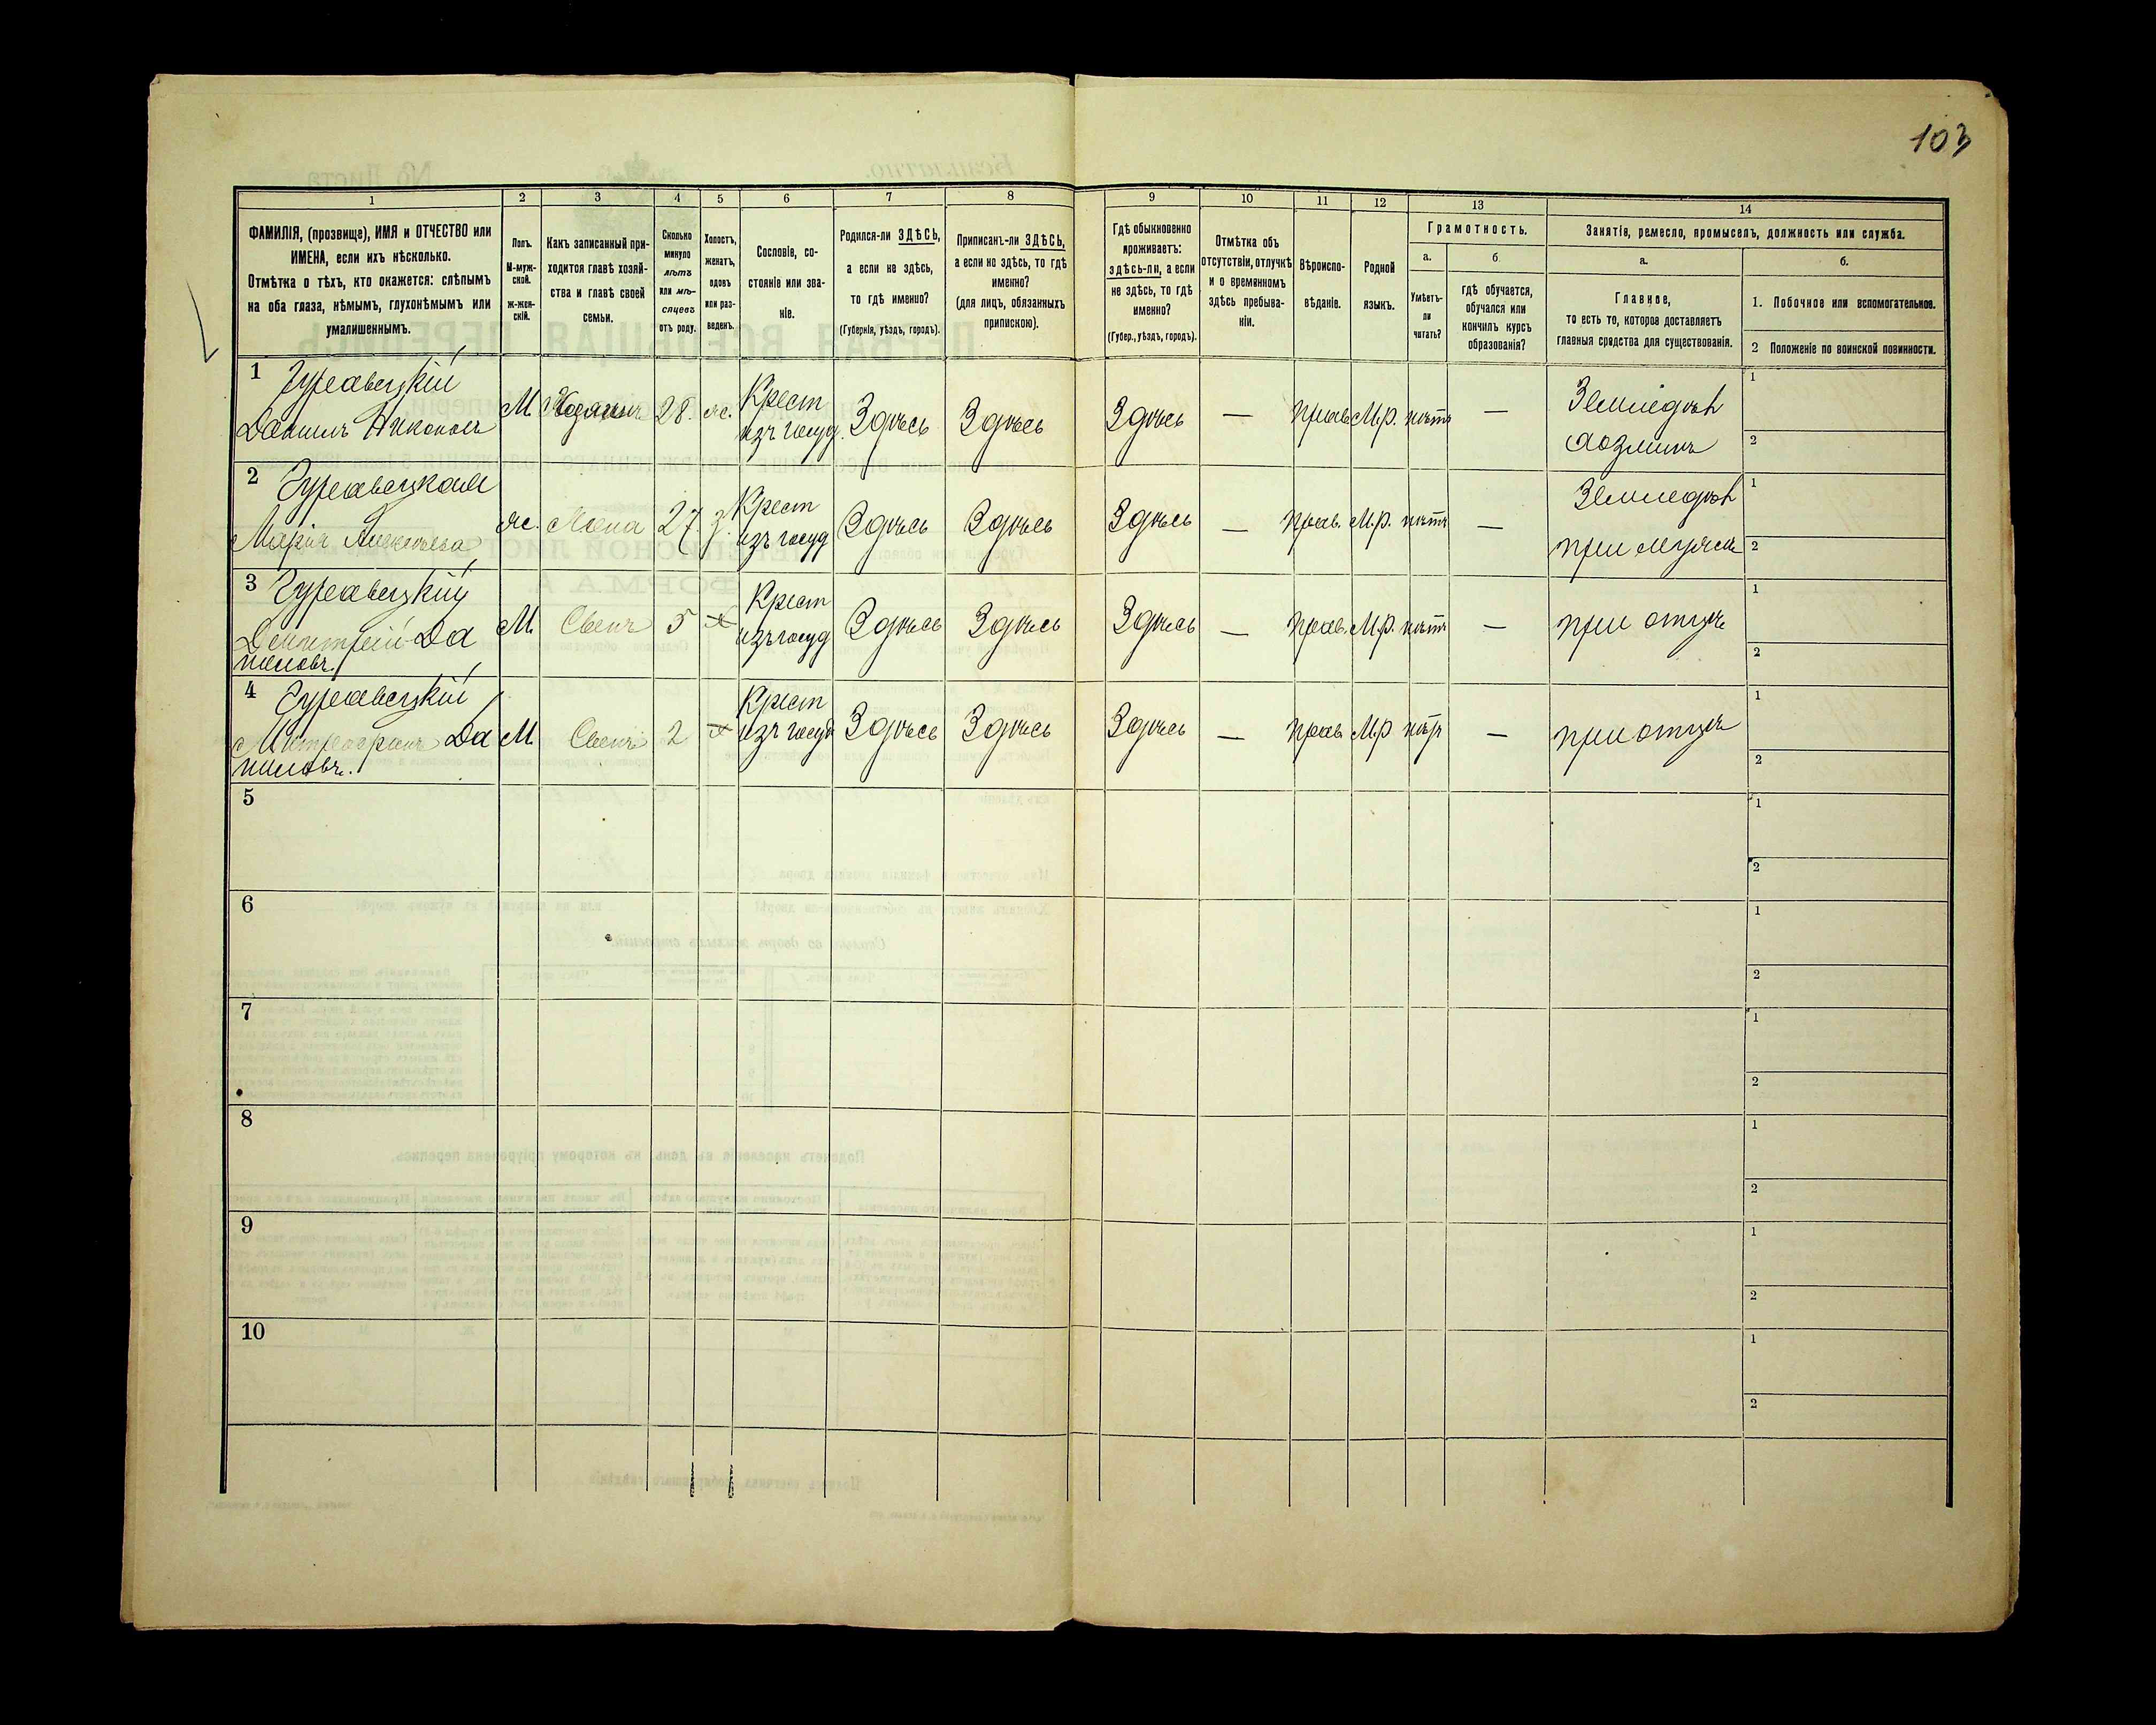 103
1
2
3
4
5
6
7
8
9
10
11
12
13
14
ФАМИЛІЯ, (прозвище), ИМЯ и ОТЧЕСТВО или
ИМЕНА, если ихъ нѣсколько.
Отмѣтка о тѣхъ, кто окажется: слѣпымъ
на оба глаза, нѣмымъ, глухонѣмымъ или
умалишеннымъ.
Полъ.
М-муж-
ской.
Ж-жен-
скій.
Какъ записанный при-
ходится главѣ хозяй-
ства и главѣ своей
семьи.
Сколько
минуло
лѣтъ
или мѣ-
сяцевъ
отъ роду.
Холостъ,
женатъ,
вдовъ
или раз-
веденъ.
Сословіе, со-
стояніе или зва-
ніе.
Родился-ли ЗДѢСЬ,
а если не здѣсь,
то гдѣ именно?
(Губернія, уѣздъ, городъ).
Приписанъ-ли ЗДѢСЬ,
а если не здѣсь, то гдѣ
именно?
(для лицъ, обязанныхъ
припискою).
Гдѣ обыкновенно
проживаетъ:
здѣсь-ли, а если
не здѣсь, то гдѣ
именно?
(Губер., уѣздъ, городъ).
Отмѣтка объ
отсутствіи, отлучкѣ
и о временномъ
здѣсь пребыва-
ніи.
Вѣроиспо-
вѣданіе.
Родной
языкъ.
Грамотность.
а.
Умѣетъ-
ли
читать?
б.
гдѣ обучается,
обучался или
кончилъ курсъ
образованія?
Занятіе, ремесло, промыселъ, должность или служба.
а.
Главное,
то есть то, которое доставляетъ
главныя средства для существованія.
б.
1. Побочное или вспомогательное.
2 Положеніе по воинской повинности.
1
Даниилъ Никоновъ
М Хозяинъ 28. ж. Крест
изъ госуд. Здѣсь Здѣсь Здѣсь — прав. М.р. нѣтъ —
хозяинъ
1
2
2
Марія
ж. Жена 27 з. Крест
изъ госуд Здѣсь Здѣсь Здѣсь — прав. М.р. нѣтъ —
при мужѣ
1
2
3
Дмитрій Да
ниловъ.
М. Сынъ 5 х Крест
изъ госуд Здѣсь Здѣсь Здѣсь — прав. М.р. нѣтъ —
при отцѣ
1
2
4
Митрофанъ Да
ниловъ.
М. Сынъ 2 х Крест
изъ госуд Здѣсь Здѣсь Здѣсь — прав М.р нѣт —
при отцѣ
1
2
5
1
2
6
1
2
7
1
2
8
1
2
9
1
2
10
1
2